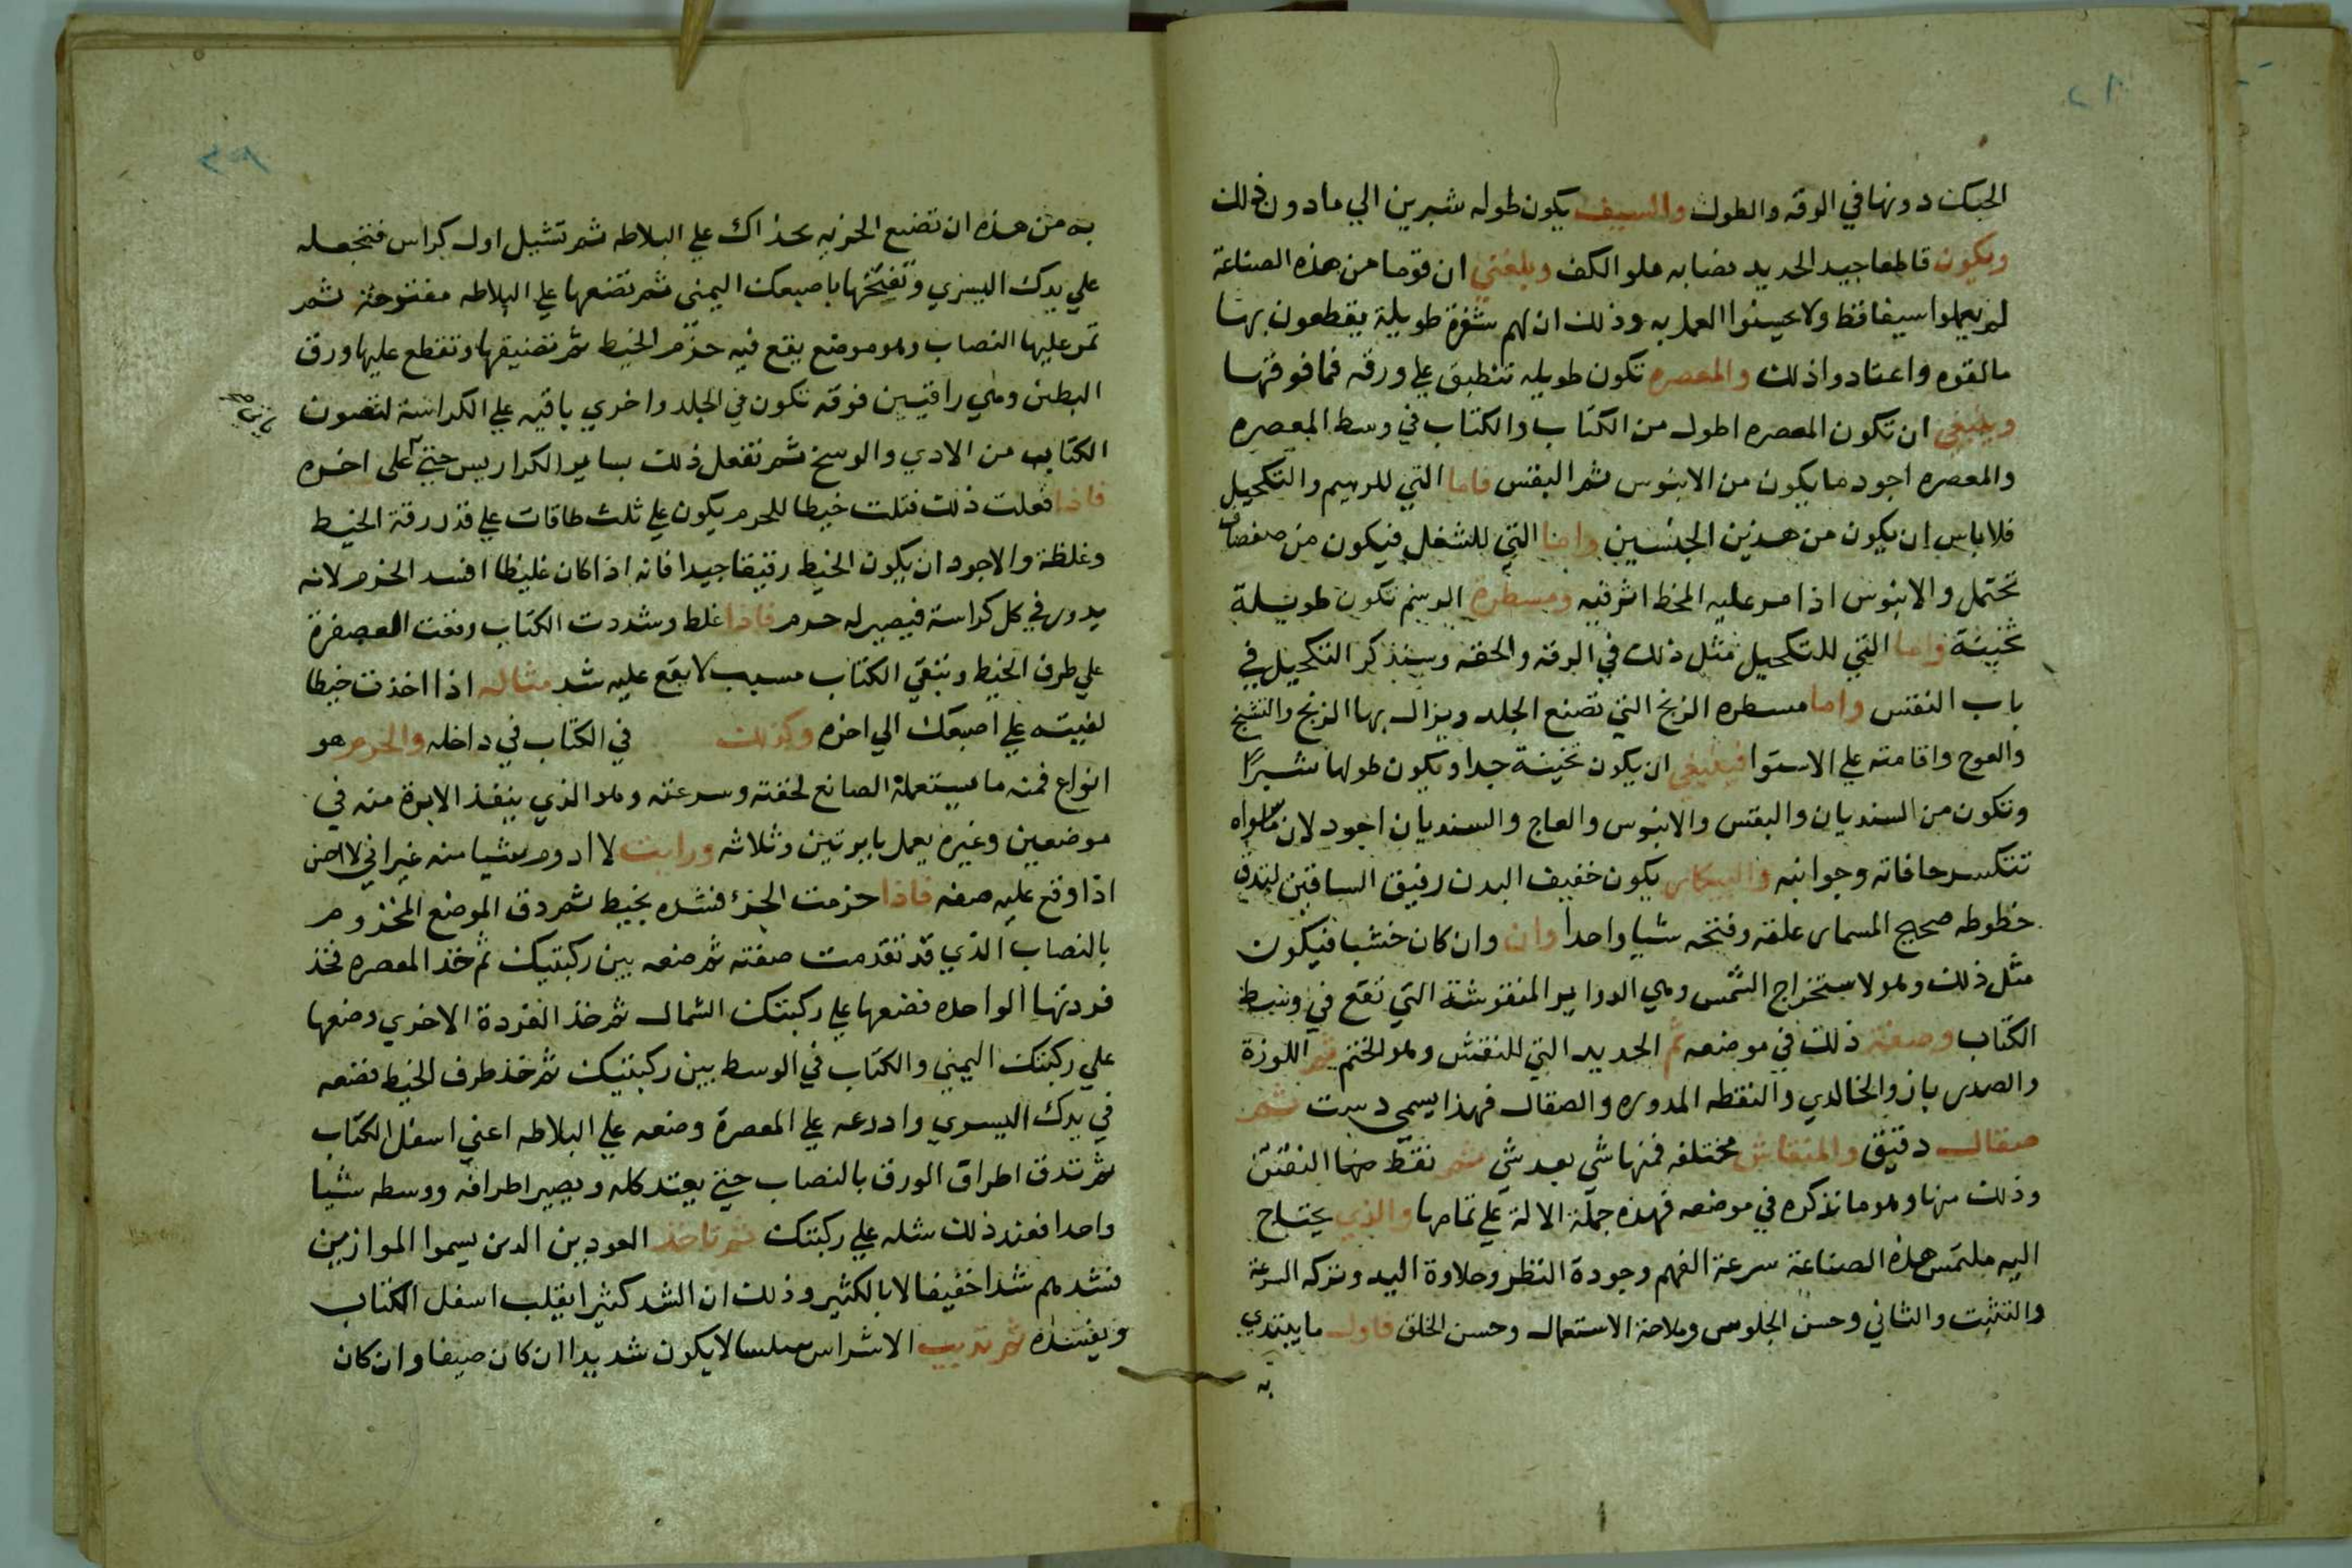 الحبك دونها في الرقه والطول والسيف يكون طوله شبرين الي مادون ذلك
ويكون قاطعا جيد الحديد نصابه ملو الكف وبلغني ان قوما من هذه الصناعة
لم يعملوا سيفا قط ولا يحسنوا العمل به وذلك ان لهم شفرة طويلة يقطعون بها
مالقوه واعتادوا ذلك والمعصره تكون طويله تنطبق علي ورقه فما فوقها
وينبغي ان تكون المعصره اطول من الكتاب والكتاب في وسط المعصره
والمعصره اجود ما يكون من الابنوس ثم البقس فاما التي للرسم والتكحيل
فلا باس ان يكون من هذين الجنسين واما التي للشغل فيكون من صفصاف
تحتمل والابنوس اذا مر عليه المخط اثر فيه ومسطرة الرسم تكون طويلة
ثخينة واما التي للتكحيل مثل ذلك في الرقه والخفه وسنذكر التكحيل في
باب النقش واما مسطره الزيخ التي تصنع الجلد ويزال بها الزيخ والتشنج
والعوج واقامته علي الاستوا فينبغي ان يكون ثخينة جدا ويكون طولها شبرًا
وتكون من السنديان والبقس والابنوس والعاج والسنديان اجود لان ما سواه
تتكسر حافاته وجوانبه والبيكار يكون خفيف البدن رقيق الساقين لتدق
خطوطه صحيح المسمار غلقه وفتحه شيا واحدا وان وان كان خشبا فيكون
مثل ذلك وهو لاستخراج الشمس وهي الدواير المنقوشة التي تقع في وسط
الكتاب وصفة ذلك في موضعه ثم الحديد التي للنقش وهو الختم ثم اللوزة
والصدرباز والخالدي والنقطه المدوره والصقال فهذا يسمي دست ثم
صقال دقيق والمنقاش مختلفه فمنها شي بعد شي ثم نقط منها النقش
وذلك منها وهو ما نذكره في موضعه فهذه جملة الالة علي تمامها والذي يحتاج
اليه ملتمس هذه الصناعة سرعة الفهم وجودة النظر وحلاوة اليد وتركه السرعة
والتثبت والتاني وحسن الجلوس وملاحة الاستعمال وحسن الخلق فاول ما يبتدي
به
به من هذه ان تضع الحزبه بحذاك علي البلاطه ثم تشيل اول كراس فتجعله
علي يدك اليسري وتفتحها باصبعك اليمني ثم تضعها علي البلاطه مفتوحة ثم
تمر عليها النصاب وهو موضع يقع فيه حزم الخيط ثم تضيقها وتقطع عليها ورق
البطن وهي راقيين فوقه تكون في الجلد واخري باقيه علي الكراسة لتصون
الكتاب من الادي والوسخ ثم تفعل ذلك بساير الكراريس حتي علي اخره
فاذا فعلت ذلك فتلت خيطا للحزم يكون علي ثلث طاقات علي قدر رقة الخيط
وغلظة والاجود ان يكون الخيط رقيقا جيدا فانه اذا كان غليظا افسد الحزم لانه
يدور في كل كراسة فيصير له حرم فاذا غلظ وشددت الكتاب وقعت المعصرة
علي طرف الخيط وبقي الكتاب مسيب لا يقع عليه شد مثاله اذا اخذت خيطا
لفيته علي اصبعك الي اخره وكذلك في الكتاب في داخله والحزم هو
انواع فمنه ما يستعمله الصانع لخفته وسرعته وهو الذي ينفذ الابرة منه في
موضعين وغيره يعمل بابرتين وثلاثه ورايت لا اروم شيا منه غير اني لا احسن
اذا وقع عليه صفه فاذا حزمت الجزء فشده بخيط ثم دق الموضع المخزوم
بالنصاب الذي قد تقدمت صفته ثم ضعه بين ركبتيك ثم خذ المعصره فخذ
فردتها الواحده فضعها علي ركبتك الشمال ثم خذ الفردة الاخري وضعها
علي ركبتك اليمني والكتاب في الوسط بين ركبتيك ثم خذ طرف الخيط فضعه
في يدك اليسري وادرعه علي المعصرة وضعه علي البلاطه اعني اسفل الكتاب
ثم تدق اطراق الورق بالنصاب حتي يعتد كله ويصير اطرافه ووسطه شيا
واحدا فعند ذلك شله علي ركبتك ثم تاخذ العودين الدين يسموا الموازين
فتشدهم شدا خفيفا لا بالكثير وذلك ان الشد كثيرا يقلب اسفل الكتاب
ويفسده ثم تديب الاشراس سلسا لا يكون شديدا ان كان صيفا وان كان